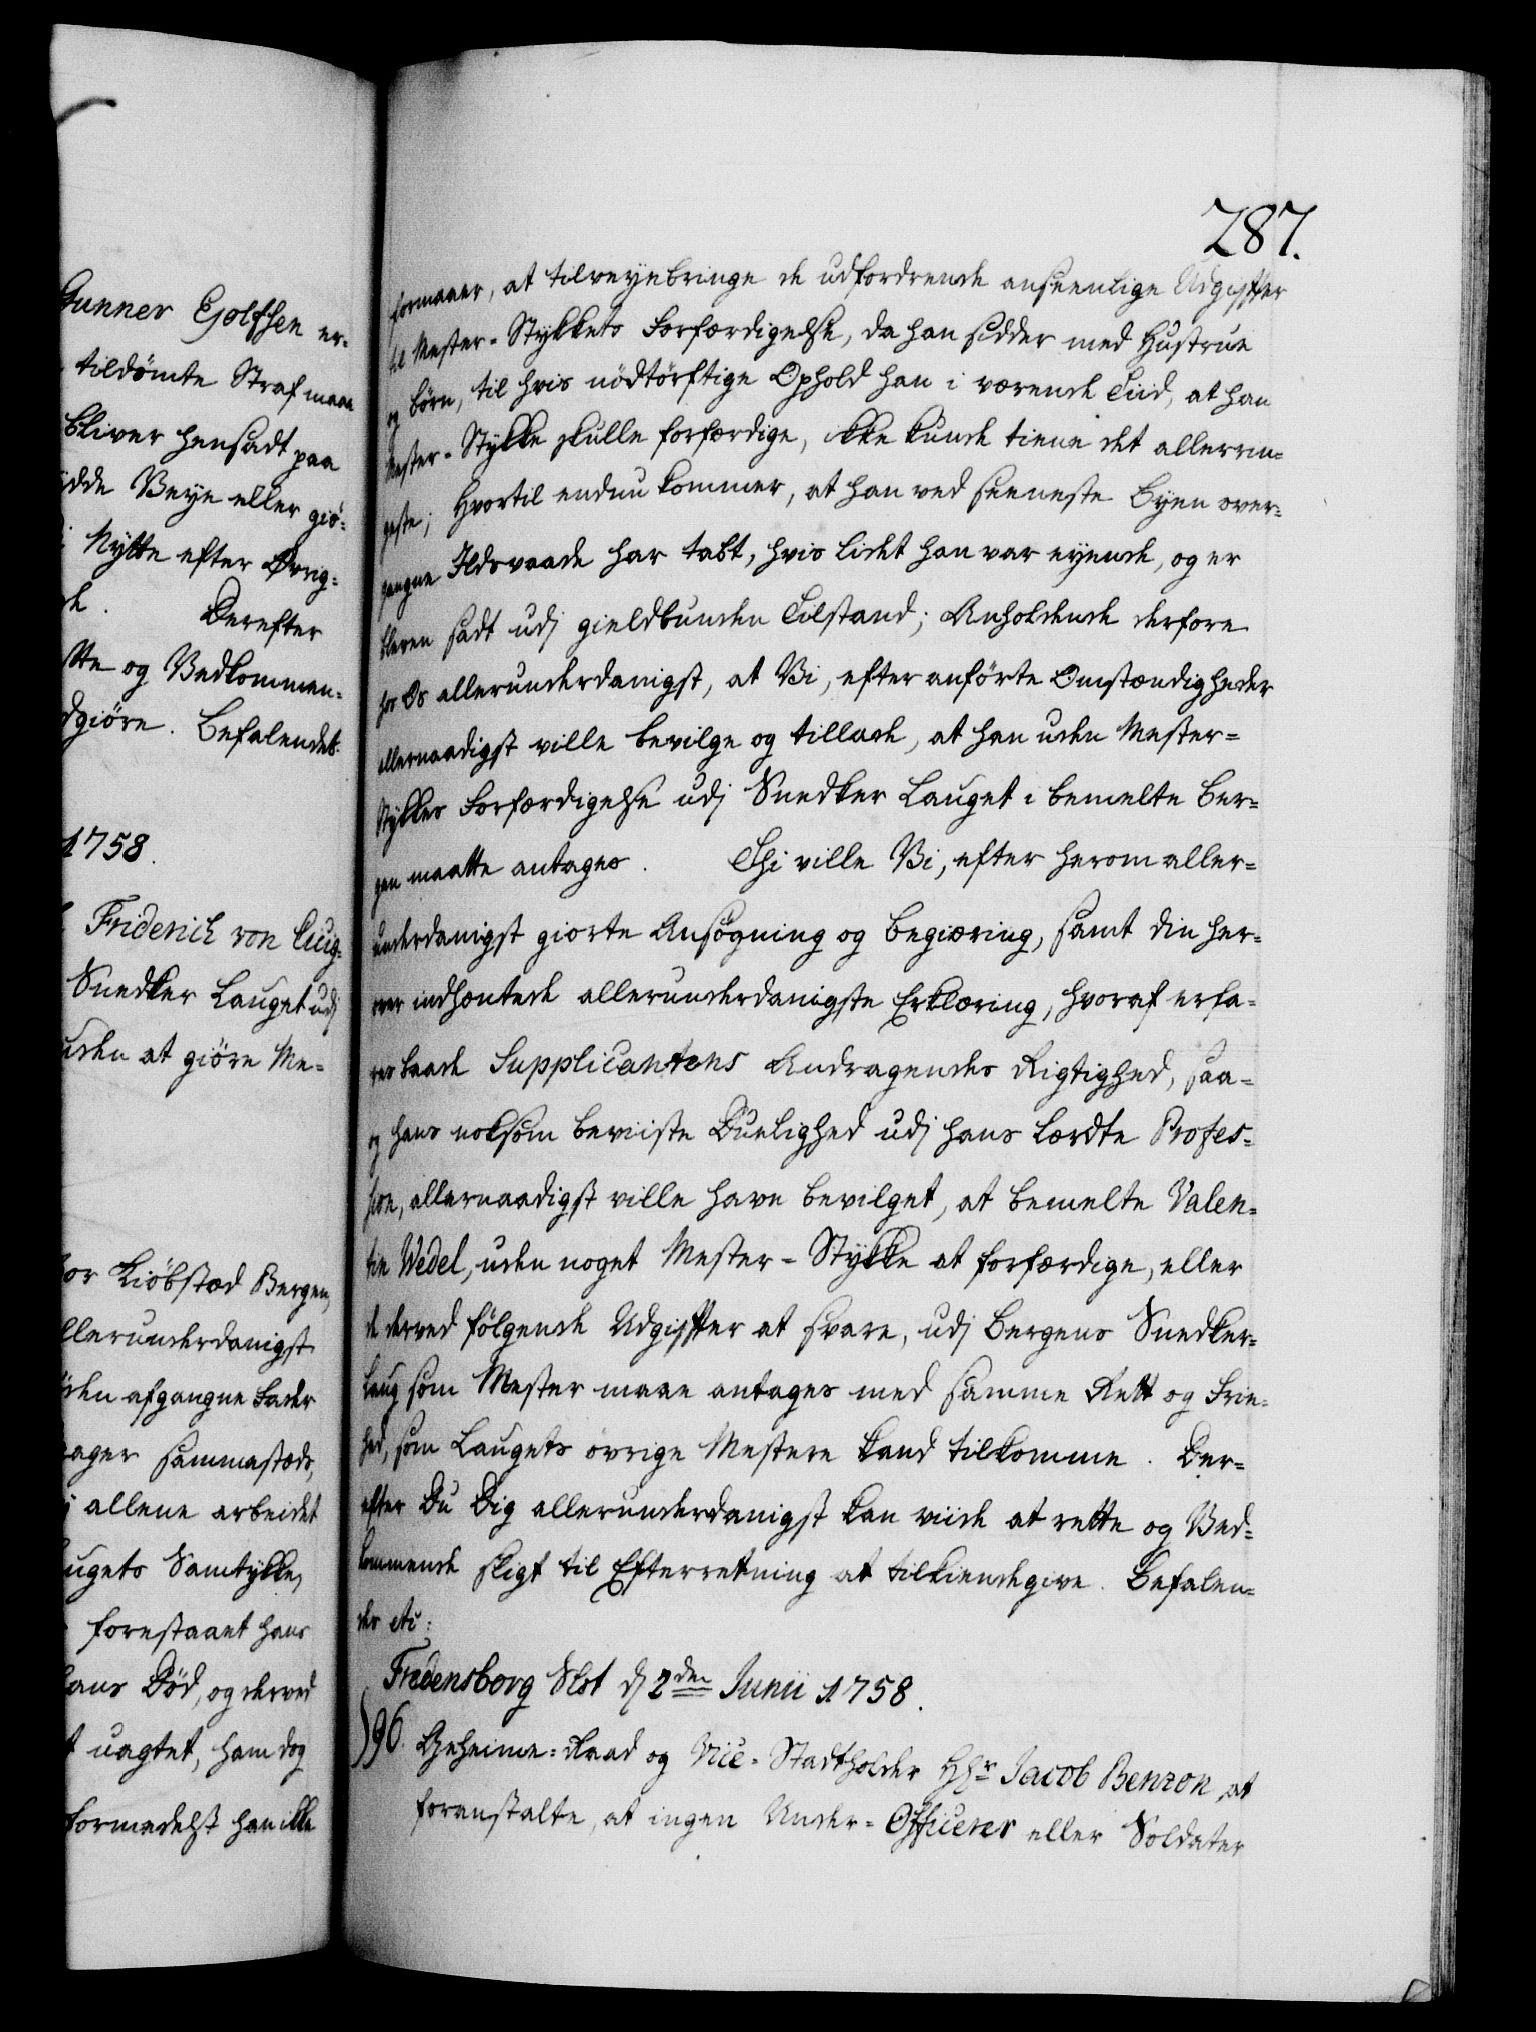 Gunner Ejolfsen er-
tildömte Straf maae
bliver hensadt paa
Veye eller giö-
Nytte efter Øvrig-
Derefter
og Vedkommen-
dgiöre. Befalendes
1758.
Friderich von
Snedker Lauget udj
uden at giöre Me-
Kiöbstæd Bergen,
allerunderdanigst
afgangne Fader
sammestæds,
allene arbeidet
Laugets Samtykke,
forestaaet hans
hans Död, og derved
uagtet, ham dog
formedelst han ikke
287.
formaaer, at tilveyebringe de udfordrende anseenlige Udgiffter
til Mester-Stykkets Forfærdigelse, da han sidder med Hustrue
og börn, til hvis nödtörftige Ophold han i værende Tiid, at han
Mester-Stykke skulle forfærdige, ikke kunde tiene det allerrin-
geste; Hvortil endnu kommer, at han ved seeneste Byen over-
gangne Ildsvaade har tabt, hvis lidet han var eyende, og er
bleven sadt udj gieldbunden Tilstand; Anholdende derfore
for Os allerunderdanigst, at Vi, efter anförte Omstændigheder
allernaadigst ville bevilge og tillade, at han uden Mester-
Stykkes Forfærdigelse udj Snedker Lauget i bemelte Ber-
gen maatte antages. Thi ville Vi, efter herom aller-
underdanigst giorte Ansøgning og begiæring, samt din her-
over indhentede allerunderdanigste Erklæring, hvoraf erfa-
res baade Supplicantens Andragendes Rigtighed, saa-
og hans noksom beviiste Duelighed udj hans lærdte Profes-
sion, allernaadigst ville have bevilget, at bemelte Valen-
tin Wedel, uden noget Mester-Stykke at forfærdige, eller
de derved fölgende Udgiffter at svare, udj Bergens Snedker-
Laug som Mester maae antages med samme Rett og Frie-
hed, som Laugets övrige Mestere kand tilkomme. Der-
efter Du Dig allerunderdanigst kan viide at rette og Ved-
kommende sligt til Efterretning at tilkiendegive. Befalen-
des etc:
Fredensborg Slot d 2den Junii 1758.
96. Geheime-Raad og Vice-Stadtholder Hr Jacob Benzon, at
foranstalte, at ingen Under-Officerer eller Soldater